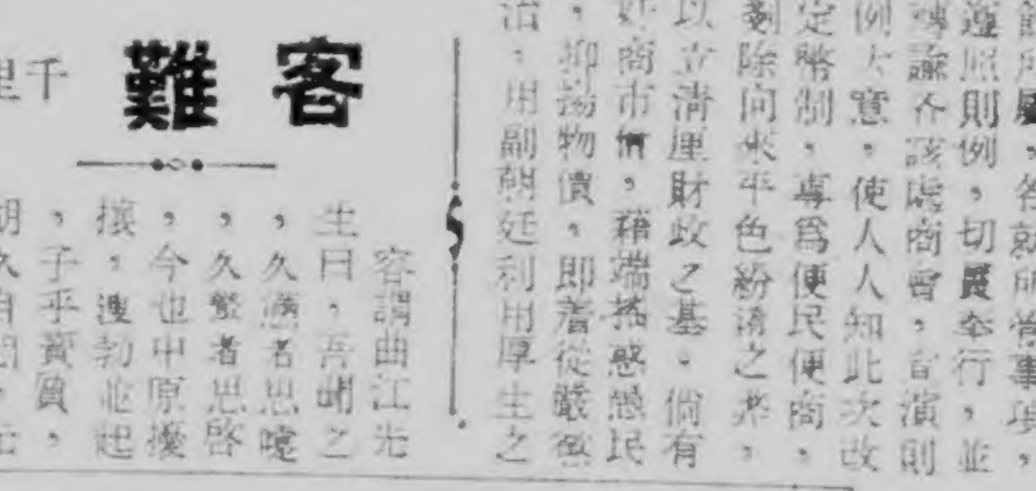 遵照則例,切實奉行,並
轉諭各該處商會,宣演則
例大意,使人人知此次改
定幣制,專爲便民便商,
剗除向來平色紛淆之弊,
以立清厘財政之基。倘有
奸商市儈,藉端搖惑愚民
,抑揚物價,即着從嚴懲
治,用副朝廷利用厚生之
客難
千里
客謂曲江先
生曰,吾聞之
,久懣者思嚏
,久鬱者思啓
,今也中原擾
攘,溲勃並起
,子乎賚質,